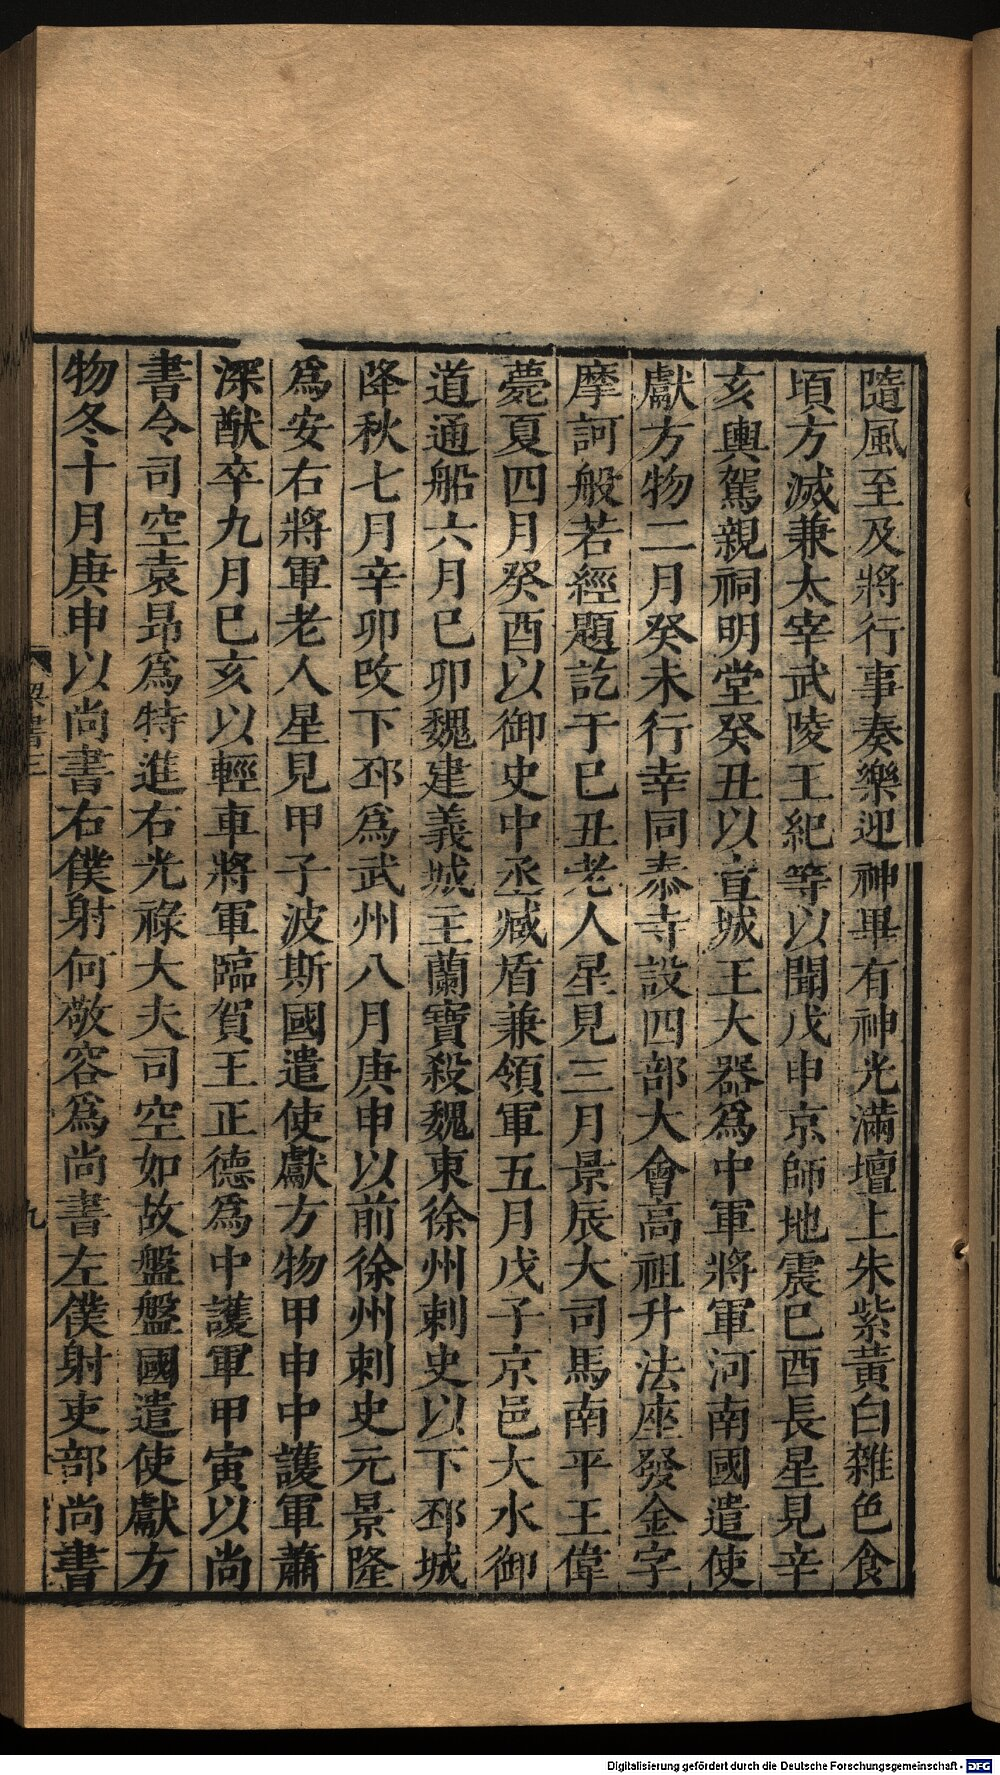 隨風至及將行事奏樂迎神畢有神光滿壇上朱紫黃白雜色食
頃方滅兼太宰武陵王紀等以聞戊申京師地震巳酉長星見辛
亥輿駕親祠明堂癸丑以宣城王大器爲中軍將軍河南國遣使
獻方物二月癸未行幸同泰寺設四部大會高祖升法座發金字
摩訶般若經題訖于巳丑老人星見三月景辰大司馬南平王偉
薨夏四月癸酉以御史中丞臧盾兼領軍五月戊子京邑大水御
道通船六月巳卯魏建義城主蘭寶殺魏東徐州刺史以下邳城
降秋七月辛卯改下邳爲武州八月庚申以前徐州刺史元景隆
爲安右將軍老人星見甲子波斯國遣使獻方物甲申中護軍蕭
深猷卒九月巳亥以輕車將軍臨賀王正德爲中護軍甲寅以尚
書令司空袁昂爲特進右光祿大夫司空如故盤盤國遣使獻方
物冬十月庚申以尚書右僕射何敬容爲尚書左僕射吏部尚書
梁書三
九
Digitalisierung gefördert durch die Deutsche Forschungsgemeinschaft - DFG